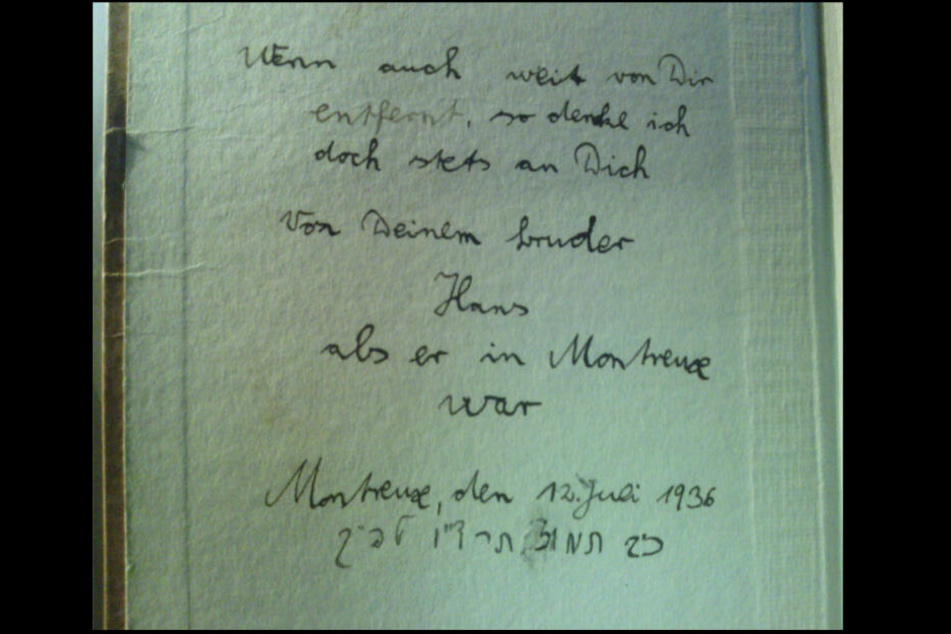 Wenn auch weit von Dir
entfernt, so denke ich
doch stets an Dich
Von Deinem bruder
Hans
als er in Montreux
war
Montreux, den 12. Juli 1936
כב תמוז תרצ"ו לפ"ק